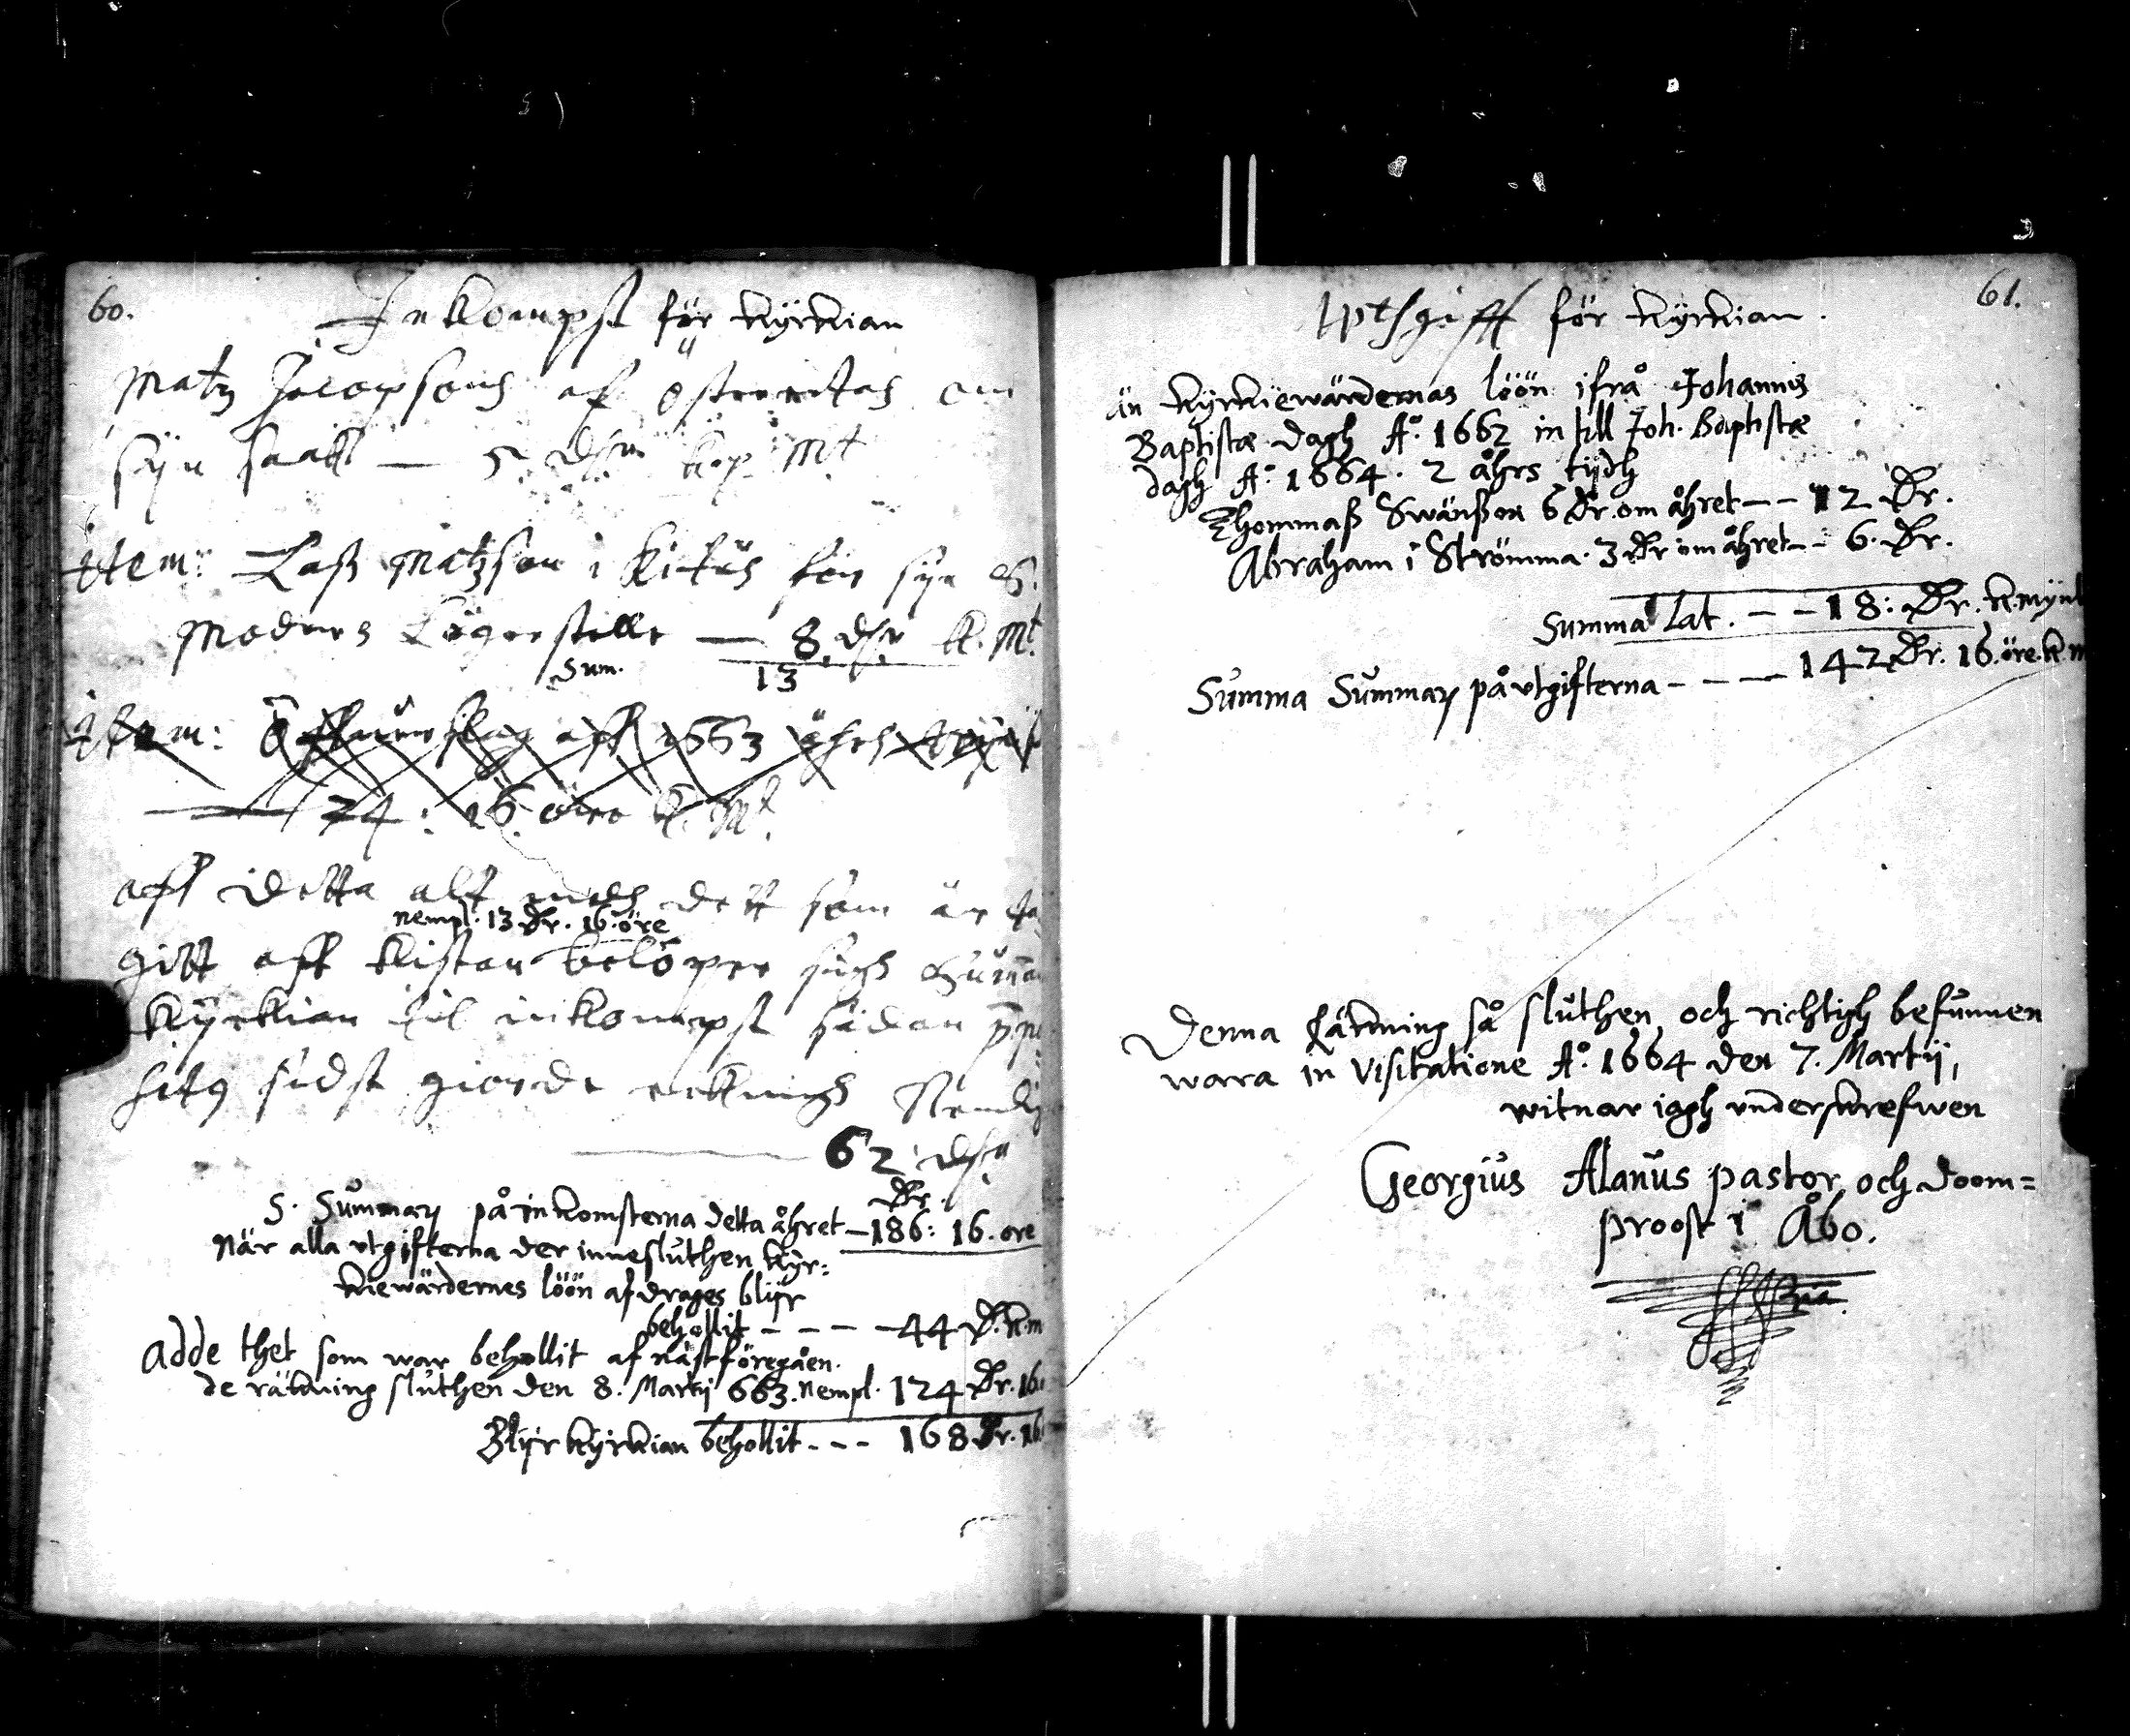 60.
Inkompst för kyrkian
Matz Jacopsons af Östre
syn saak — 5 dlr kop. Mt
item: Laß Matzson i för syn S.
Moders Lägerstelle — 8 dlr k. Mt
Sum. 13
item: aff 1663 åhrs
74: 16 öre k. Mt
aff detta alt medh dett som är ta
nempl. 13 Dr. 16 öre
gitt aff kistan belöper sigh Summa
kyrkian til inkompst sidan
sidst giorde rekningh Nemlig
62 dlr
Dr.
S. Summar på inkomsterna detta åhret — 186: 16. öre
När alla vtgifterna der innesluthen kyr=
kiewärdernes löön afdrages blijr
behollit - - - - 44 D. k. m
Adde thet som war behollit af nästföregåen.
de räkning sluthen den 8. Martij 663. nempl. 124 Dr. 16.
Blijr kyrkian behollit - - - 168 Dr. 16
61.
Vthgiff för kyrkian.
än kyrkiewärdernas löön ifrå Johannis
Baptistæ dagh A:o 1662 in till Joh. Baptistæ
dagh A:o 1664. 2 åhrs tijdh
Thommaß Swänßon 6 Dr. om åhret - - 12 Dr.
Abraham i Strömma. 3 Dr om åhret - - 6. Dr.
Summa Lat. - - 18: Dr. k. mynt
Summa Summar på vtgifterna - - - - 142 Dr. 16. öre. k. m
Denna Räkning så sluthen och richtigh befunnen
wara in Visitatione A:o 1664 den 7. Martij,
witnar iagh vnderskrefwen
Georgius Alanus pastor och doom=
proost i Åbo.